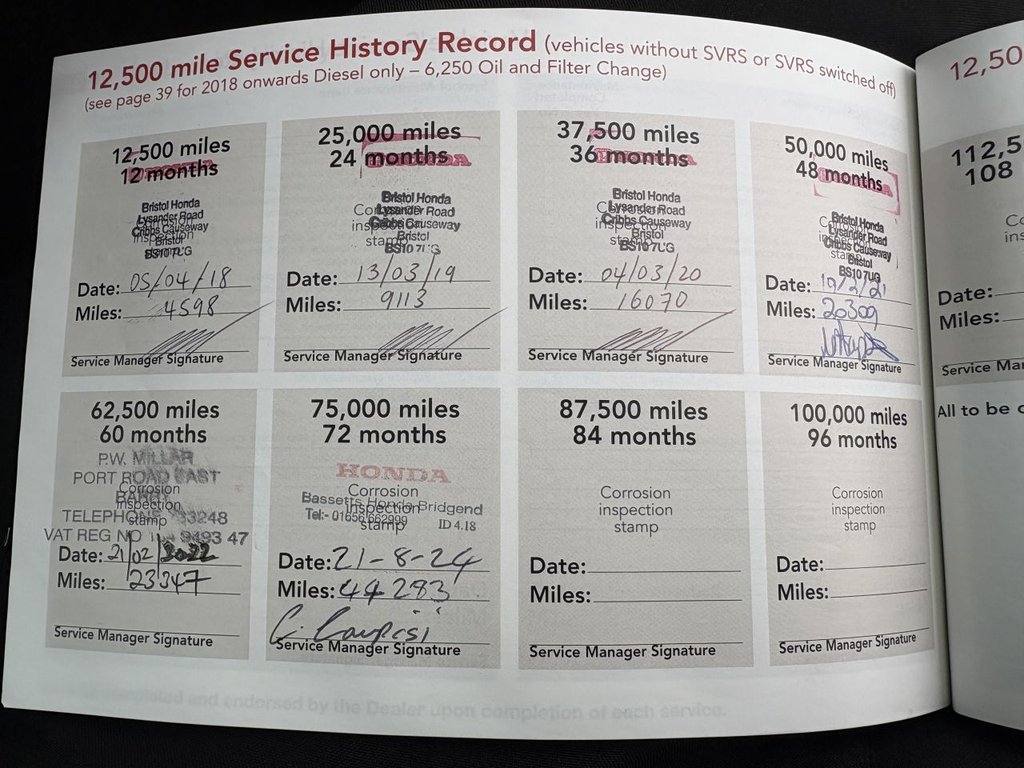 12,500 mile Service History Record (vehicles without SVRS or SVRS switched off)
(see page 39 for 2018 onwards Diesel only – 6,250 Oil and Filter Change)
12,500 miles
12 months
Bristol Honda
Lysander Road
Cribbs Causeway
Bristol
BS10 7UG
Corrosion
inspection
stamp
Date: 05/04/18
Miles: 4598
Service Manager Signature
25,000 miles
24 months
HONDA
Bristol Honda
Lysander Road
Cribbs Causeway
Bristol
BS10 7UG
Corrosion
inspection
stamp
Date: 13/03/19
Miles: 9113
Service Manager Signature
37,500 miles
36 months
HONDA
Bristol Honda
Lysander Road
Cribbs Causeway
Bristol
BS10 7UG
Corrosion
inspection
stamp
Date: 04/03/20
Miles: 16070
Service Manager Signature
50,000 miles
48 months
Bristol Honda
Lysander Road
Cribbs Causeway
Bristol
BS10 7UG
Corrosion
inspection
stamp
Date: 19/2/21
Miles: 20309
Service Manager Signature
62,500 miles
60 months
P.W. MILLAR
PORT ROAD EAST
BARRY
Corrosion
inspection
stamp
TELEPHONE 33248
VAT REG NO 9493 47
Date: 21/02/2022
Miles: 23347
Service Manager Signature
75,000 miles
72 months
HONDA
Corrosion
inspection
stamp
Bassetts Honda Bridgend
Tel:- 01656 662999 ID 4.18
Date: 21-8-24
Miles: 44283
Service Manager Signature
87,500 miles
84 months
Corrosion
inspection
stamp
Date:
Miles:
Service Manager Signature
100,000 miles
96 months
Corrosion
inspection
stamp
Date:
Miles:
Service Manager Signature
12,50
112,5
108
Co
ins
Date:
Miles:
Service Ma
All to be c